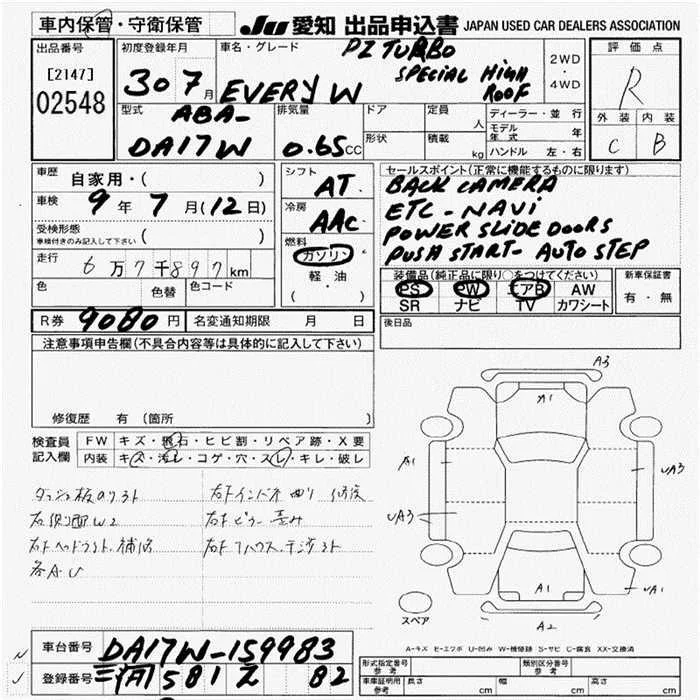 車内保管・守衛保管
JU 愛知 出品申込書 JAPAN USED CAR DEALERS ASSOCIATION
出品番号
[2147]
02548
初度登録年月
30 7月
車名・グレード
PZ TURBO
SPECIAL HIGH ROOF
EVERY W
2WD
・
4WD
評価点
R
外装 内装
C B
型式
ABA-
DA17W
排気量
0.65CC
ドア
形状
定員 人
積載 kg
ディーラー・並行
モデル年式 年
ハンドル 左・右
車歴 自家用・( )
車検 9年7月(12日)
受検形態
車検付きのみ記入して下さい ( )
走行 6万7千897km
色 色替 色コード
シフト
AT
冷房
AAC
燃料
ガソリン
軽油
( ・ )
セールスポイント(正常に機能するものに限ります)
BACK CAMERA
ETC - NAVI
POWER SLIDE DOORS
PUSH START- AUTO STEP
装備品(純正品に限り○をつけてください)
PS PW エアB AW
SR ナビ TV カワシート
新車保証書
有・無
R券 9080円 名変通知期限 月 日
後日品
注意事項申告欄(不具合内容等は具体的に記入して下さい)
修復歴 有(箇所 )
検査員記入欄
FW キズ・飛石・ヒビ割・リペア跡・X要
内装 キズ・汚レ・コゲ・穴・スレ・キレ・破レ
右ドヘッドライト補修
各AU
A3
A1
A1
UA3
UA3
A1
UA1
A2
スペア
A-キズ E-エクボ U-凹み W-補修跡 S-サビ C-腐食 XX-交換済
車台番号 DA17W-159983
登録番号 581 82
形式指定番号
参考
類別区分番号
参考
車庫証明用
参考
長さ cm 幅 cm 高さ cm